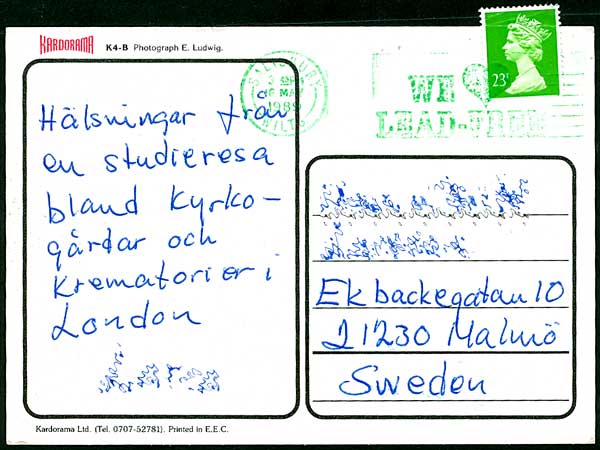 KARDORAMA K4-B Photograph E. Ludwig.
SALISBURY
MAY
1989
WILTS
WE
LEAD-FREE
23P
Hälsningar från
en studieresa
bland Kyrko-
gårdar och
Krematorier i
London
Ekbackegatan 10
21230 Malmö
Sweden
Kardorama Ltd. (Tel. 0707-52781). Printed in E.E.C.